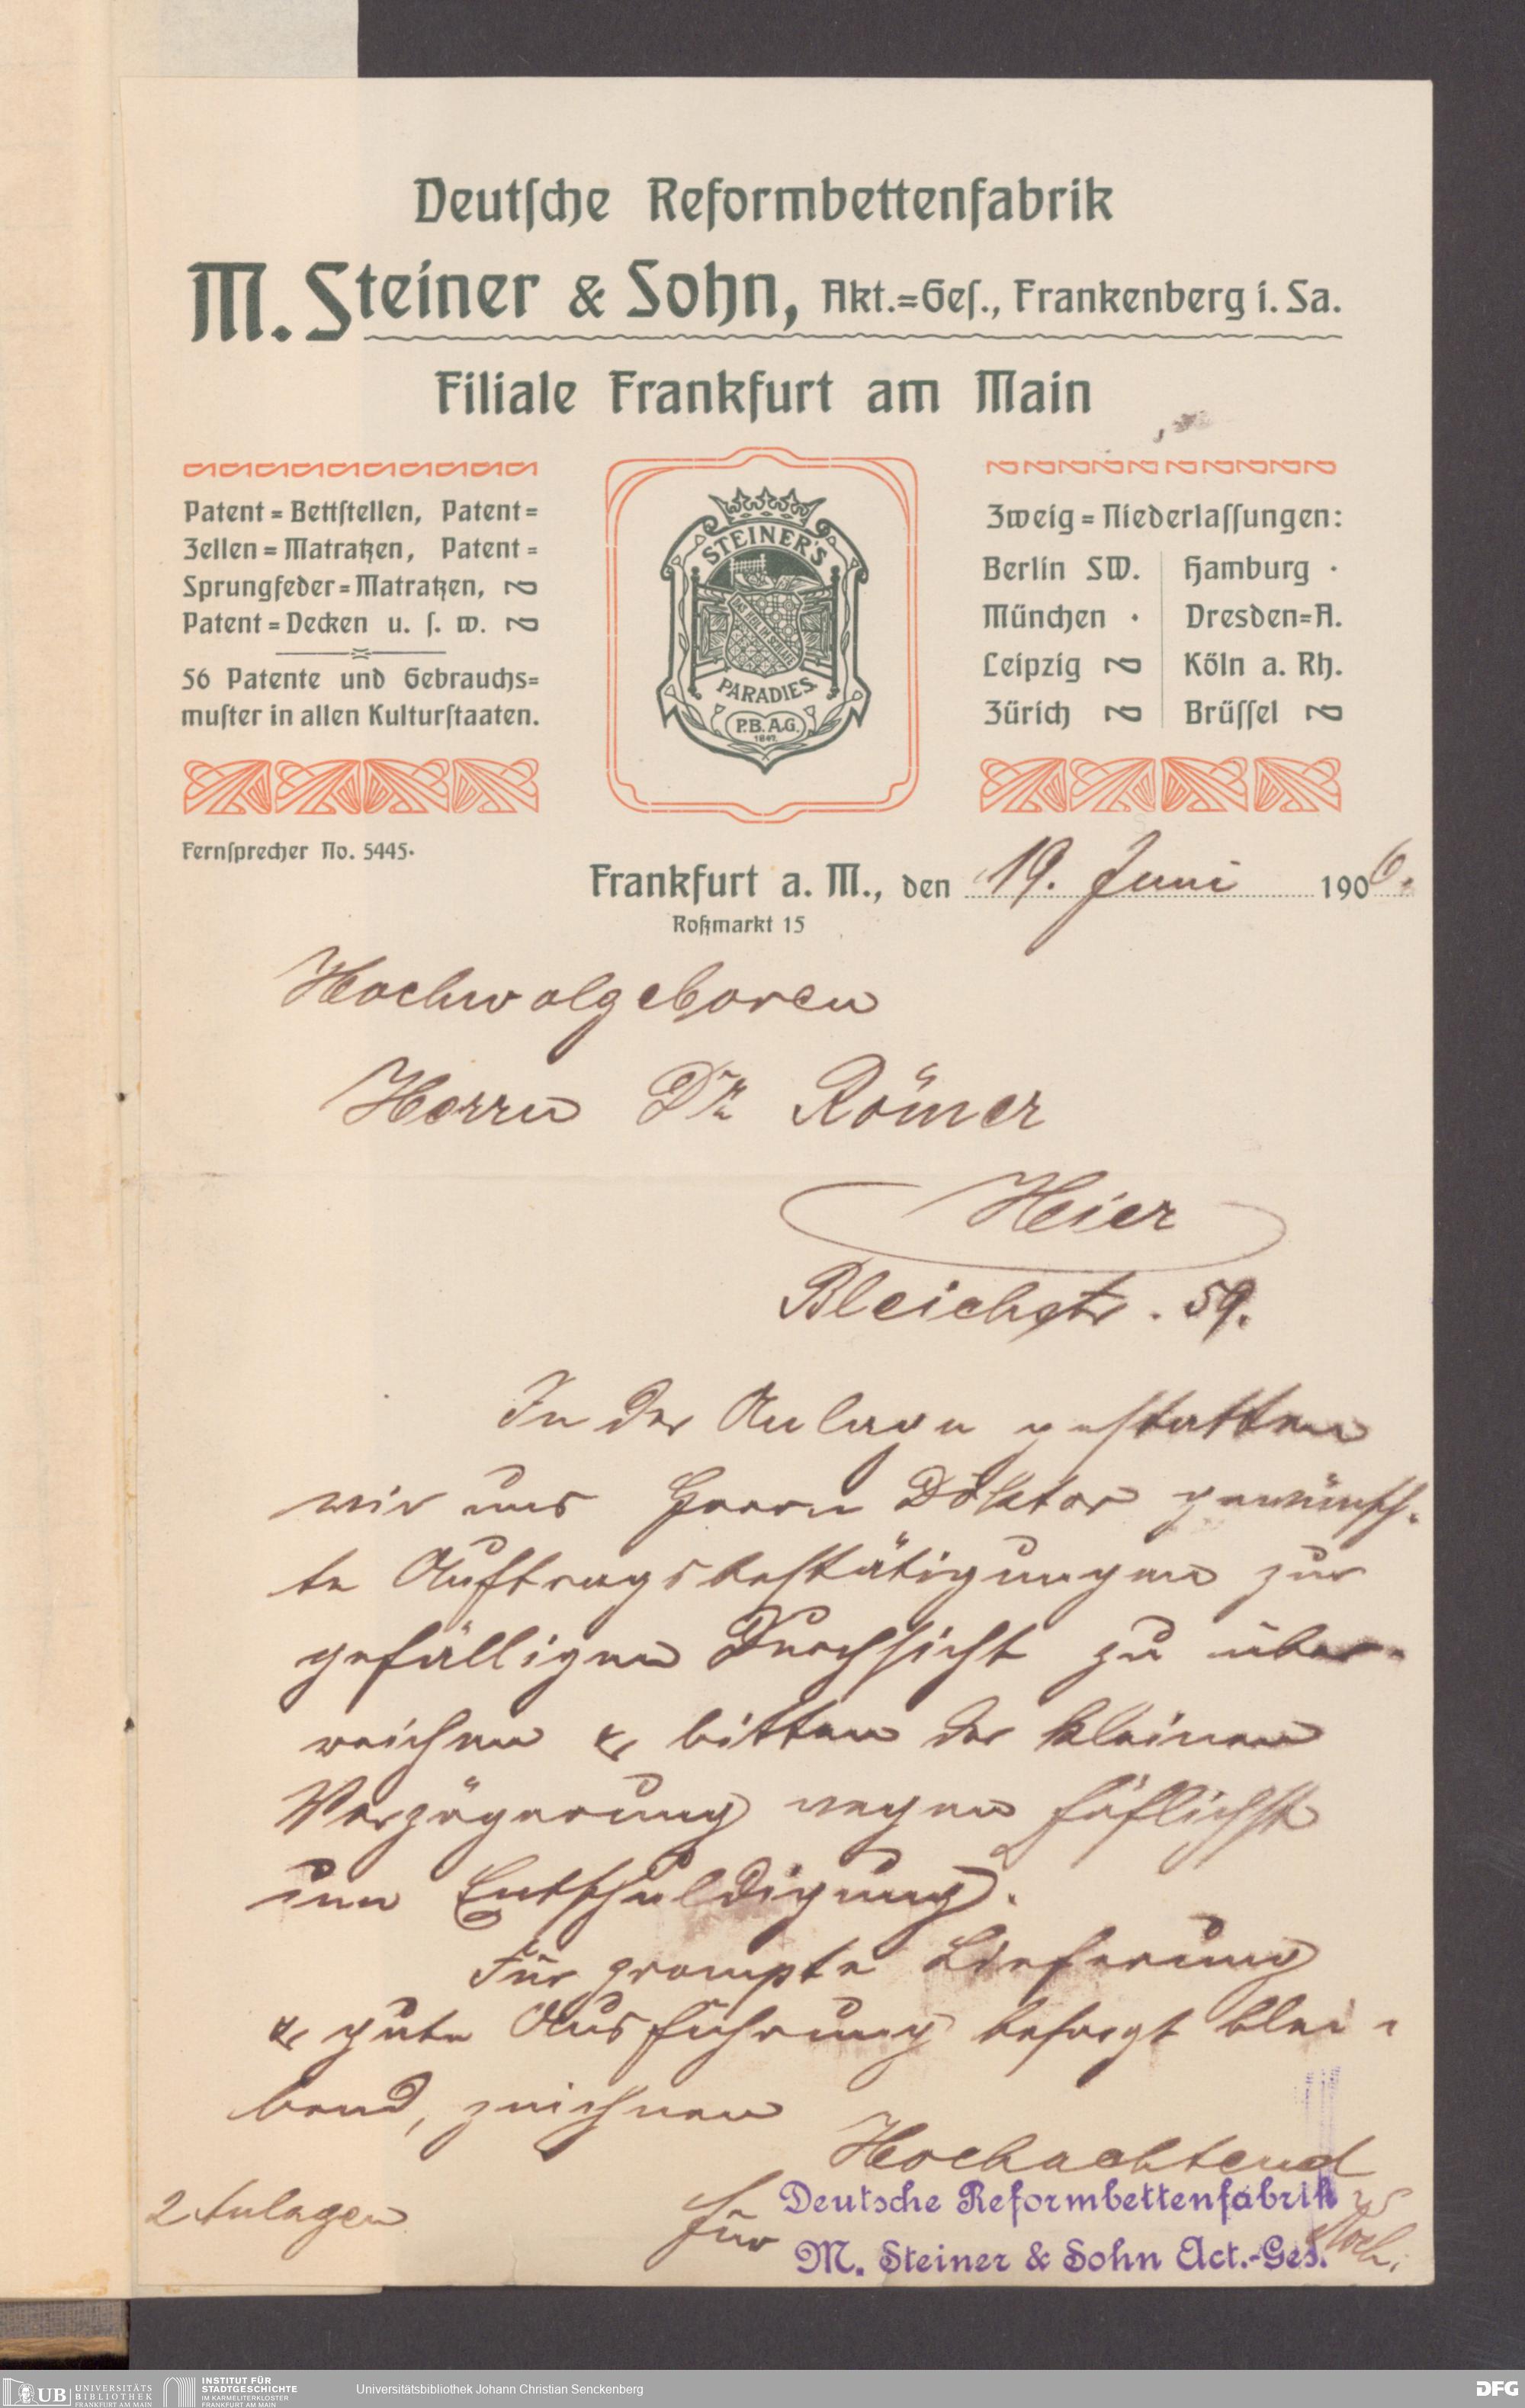 Deutſche Reformbettenfabrik
M. Steiner & Sohn, Akt.=Geſ., Frankenberg i. Sa.
Filiale Frankfurt am Main
Patent=Bettſtellen, Patent=
Zellen=Matratzen, Patent=
Sprungfeder=Matratzen,
Patent=Decken u. ſ. w.
56 Patente und Gebrauchs=
muſter in allen Kulturſtaaten.
STEINER'S
DAS HEIL IM SCHLAF
PARADIES
P.B.A.G.
Zweig=Niederlaſſungen:
Berlin SW. Hamburg ·
München · Dresden=A.
Leipzig Köln a. Rh.
Zürich Brüſſel
Fernſprecher No. 5445.
Frankfurt a. M., den 19. Juni 1906.
Roßmarkt 15
Hochwolgeboren
Herrn Dr. Römer
Hier
Bleichstr. 59.
In der Anlage gestatten
wir uns Herrn Doktor gewünsch-
te Auftragsbestätigungen zur
gefälligen Durchsicht zu über-
reichen & bitten der kleinen
Verzögerung wegen höflichst
um Entschuldigung.
Für prompte Lieferung
& gute Ausführung besorgt blei-
bend, zeichnen
Hochachtend
2 Anlagen
für Deutsche Reformbettenfabrik
M. Steiner & Sohn Act.-Ges.
UB UNIVERSITÄTS
BIBLIOTHEK
FRANKFURT AM MAIN
INSTITUT FÜR
STADTGESCHICHTE
IM KARMELITERKLOSTER
FRANKFURT AM MAIN
Universitätsbibliothek Johann Christian Senckenberg
DFG